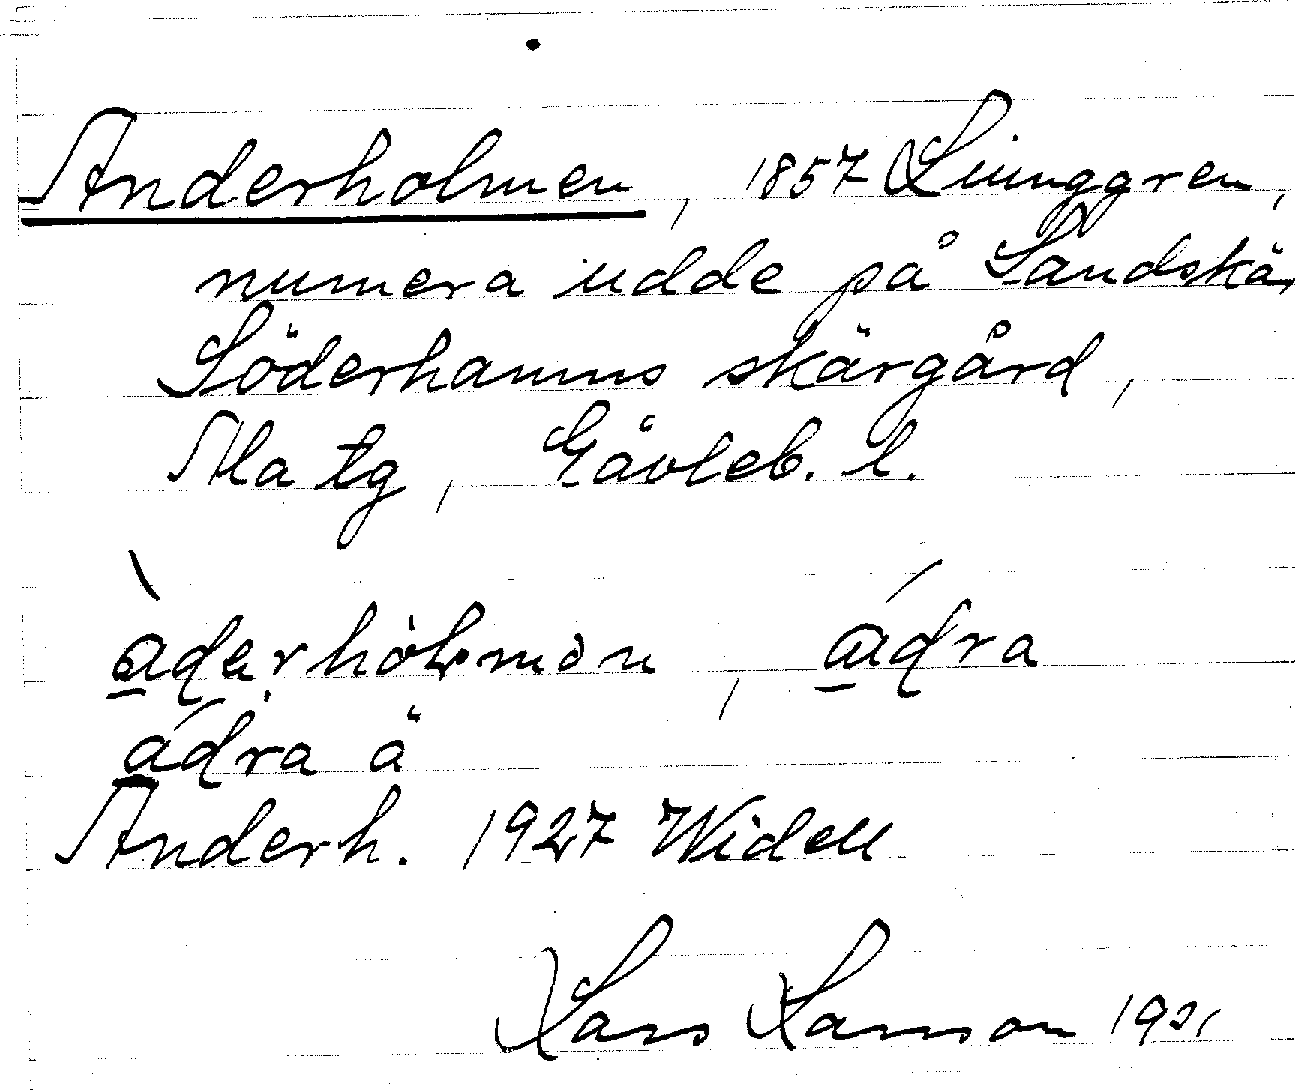 Anderholmen, 1857 Ljunggren,
numera udde på Sandskär
Söderhamns skärgård,
Ala tg, Gävleb. l.
àderhòlmen, ádra
ádra ä
Anderh. 1927 Widell
Lars Larsson